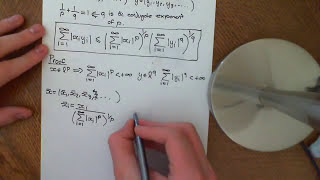 1/p + 1/q = 1 ← q is the conjugate exponent of p.
∑_{i=1}^∞ |x_i y_i| ≤ (∑_{i=1}^∞ |x_i|^p)^{1/p} (∑_{i=1}^∞ |y_i|^q)^{1/q}
Proof
x ∈ l^p ⟹ ∑_{i=1}^∞ |x_i|^p < +∞ y ∈ l^q ∑_{i=1}^∞ |y_i|^q < +∞
x = (x_1, x_2, x_3, ...)
x_1 / (∑_{i=1}^∞ |x_i|^p)^{1/p}